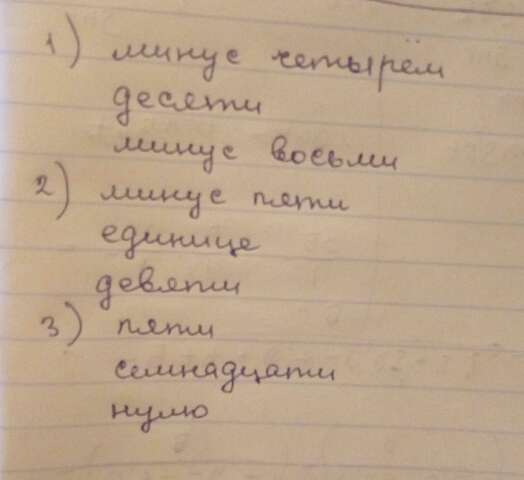 1) минус четырём
десяти
минус восьми
2) минус пяти
единице
девяти
3) пяти
семнадцати
нулю